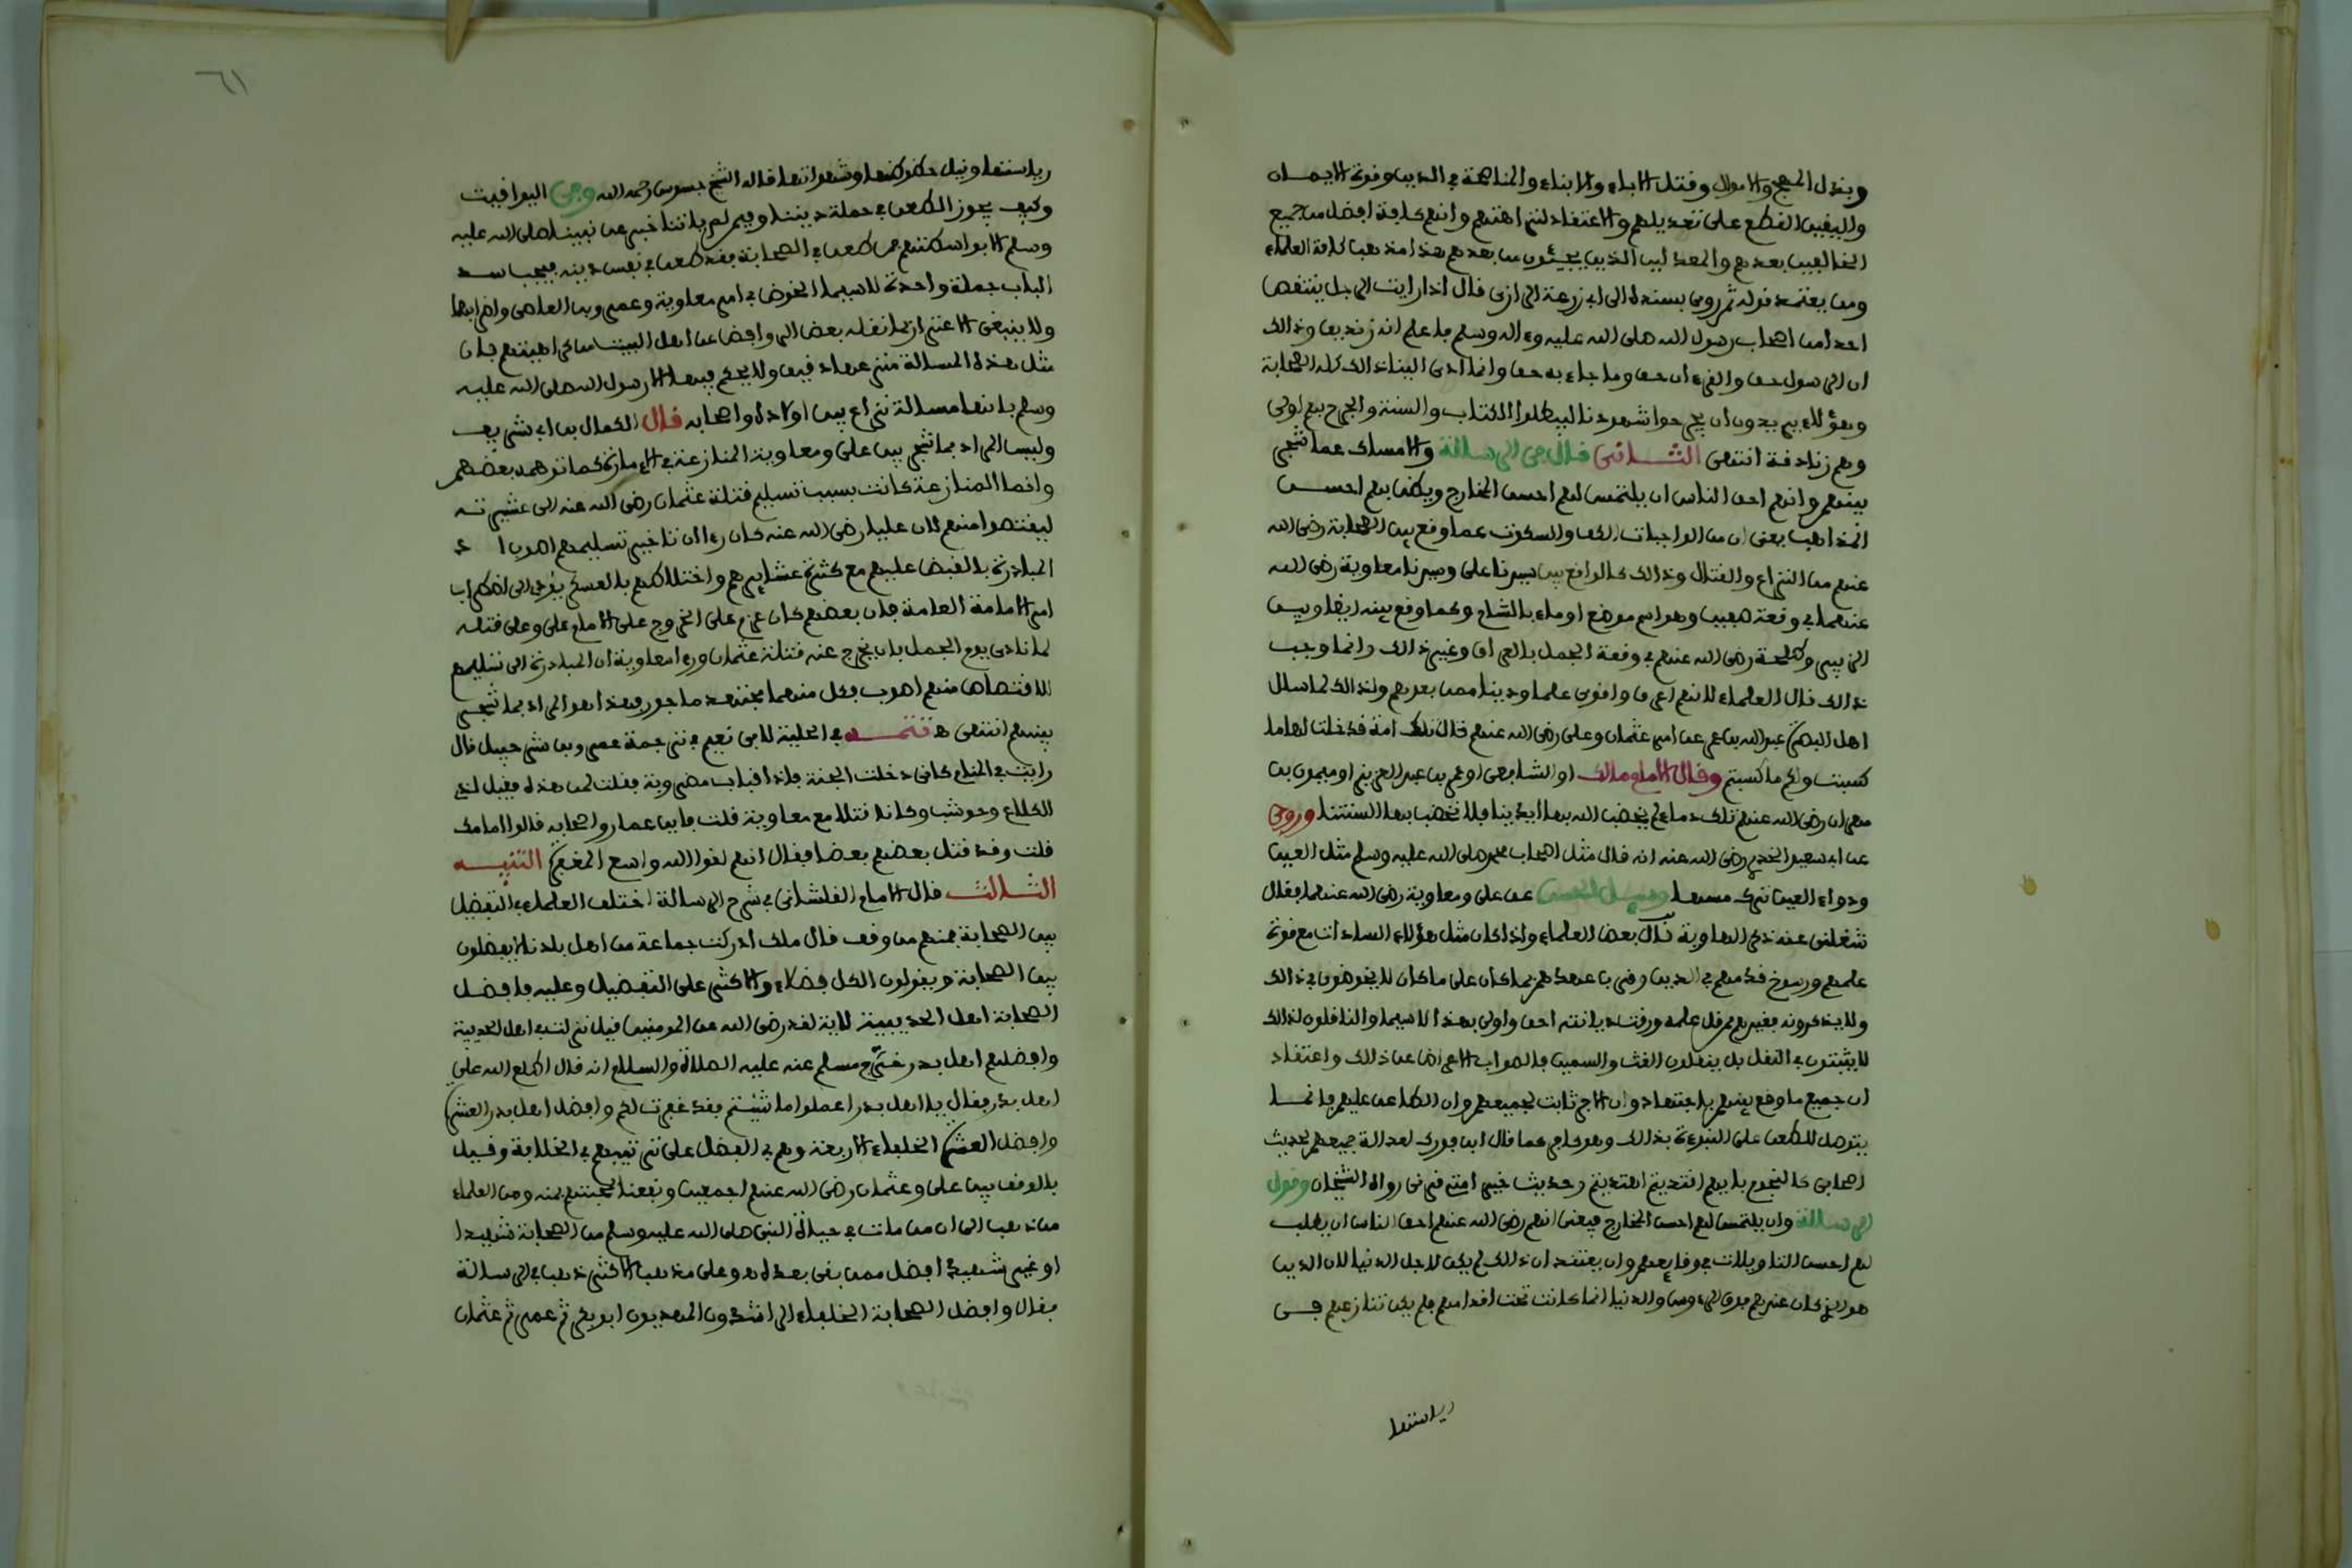 وبذل المهج والاموال وقتل الاباء والابناء والمناصحة في الدين وقوة الايمان
واليقين القطع على تعديلهم والاعتقاد لنزاهتهم وانهم كافة افضل من جميع
الخالفين بعدهم والمعدلين الذين يجيئون من بعدهم هذا مذهب كافة العلماء
ومن يعتمد قوله ثم روى بسنده الى ابي زرعة الرازى قال اذا رايت الرجل ينتقص
احدا من اصحاب رسول الله صلى الله عليه وءاله وسلم فاعلم انه زنديق وذالك
ان الرسول حق والقرءان حق وما جاء به حق وانما ادى الينا ذالك كله الصحابة
وهؤلاء يريدون ان يجرحوا شهودنا ليبطلوا الكتاب والسنة والجرح بهم اولى
وهم زنادقة انتهى الثانى قال في الرسالة والامساك عما شجر
بينهم وانهم احق الناس ان يلتمس لهم احسن المخارج ويظن بهم احسن
المذاهب يعنى ان من الواجبات الكف والسكوت عما وقع بين الصحابة رضى الله
عنهم من النزاع والقتال وذالك كالواقع بين سيدنا على وسيدنا معاوية رضى الله
عنهما في وقعة صفين وهو اسم موضع اوماء بالشام وكما وقع بينه ايضا وبين
الزبير وطلحة رضى الله عنهم في وقعة الجمل بالعراق وغير ذالك وانما وجب
ذالك قال العلماء لانهم اعرف واقوى علما ودينا ممن بعدهم ولذالك لما سال
اهل البصرة عبد الله بن عمر عن امر عثمان وعلى رضى الله عنهم قال تلك امة قد خلت لها ما
كسبت ولكم ما كسبتم وقال الامام مالك او الشافعى او عمر بن عبد العزيز او ميمون بن
مهران رضى الله عنهم تلك دماء لم يخضب الله بها ايدينا فلا نخضب بها السنتنا وروى
عن ابي سعيد الخدرى رضى الله عنه انه قال مثل اصحاب محمد صلى الله عليه وسلم مثل العين
ودواء العين ترك مسها وسئل الحسن عن على ومعاوية رضى الله عنهما فقال
علمهم ورسوخ قدمهم في الدين وقرب عهدهم بما كان على ما كان لا يخوضون في ذالك
ولا يذكرونه فغيرهم ممن قل علمه ورقت ديانته احق واولى بهذا لاسيما والناقلون لذالك
لا يثبتون في النقل بل ينقلون الغث والسمين فالصواب الاعراض عن ذالك واعتقاد
ان جميع ما وقع بينهم باجتهاد وان الاجر ثابت لجميعهم وان الطاعن عليهم فانما
يتوصل للطعن على النبوءة بذالك وهو كافر كما قال ابن فورك لعدالة جميعهم لحديث
اصحابى كالنجوم بايهم اقتديتم اهتديتم وحديث خير امتى قرنى رواه الشيخان وقول
الرسالة وان يلتمس لهم احسن المخارج فيعنى انهم رضى الله عنهم احق الناس ان يطلب
لهم احسن التاويلات في وقايعهم وان يعتقد ان ذالك لم يكن لاجل الدنيا لان الدين
هو الذي كان عندهم فوق الرءوس والدنيا انما كانت تحت اقدامهم فلم يكن تنازعهم في
رياستها
٦١
رياستها ونيل حظوظها وشهواتها قاله الشيخ جسوس رحمه الله وفى اليواقيت
وكيف يجوز الطعن في حملة ديننا وفيمن لم ياتنا خبر عن نبينا صلى الله عليه
وسلم الا بواسطتهم فمن طعن في الصحابة فقد طعن في نفس دينه فيجب سد
الباب جملة واحدة لاسيما الخوض في امر معاوية وعمرو بن العاصى واضرابهما
ولا ينبغى الاغترار بما نقله بعض الروافض عن اهل البيت من كراهيتهم فان
مثل هذه المسالة منزعها دقيق ولا يحكم فيها الا رسول الله صلى الله عليه
وسلم فانها مسالة نزاع بين اولاده واصحابه قال الكمال بن ابي شريف
وليس المراد بما شجر بين على ومعاوية المنازعة في الامارة كما توهمه بعضهم
وانما المنازعة كانت بسبب تسليم قتلة عثمان رضى الله عنه الى عشيرته
ليقتصوا منهم لان عليا رضى الله عنه كان رءا ان تاخير تسليمهم اصوب اذ
المبادرة بالقبض عليهم مع كثرة عشايرهم واختلاطهم بالعسكر يؤدى الى اضطراب
امر الامامة العامة فان بعضهم كان عزم على الخروج على الامام على وعلى قتله
لما نادى يوم الجمل بان يخرج عنه قتلة عثمان ورءا معاوية ان المبادرة الى تسليمهم
للاقتصاص منهم اصوب فكل منهما مجتهد ماجور فهذا هو المراد بما شجر
بينهم انتهى ه تتمــه في الحلية لابى نعيم في ترجمة عمرو بن شرحبيل قال
رايت في المنام كانى دخلت الجنة فاذا قباب مضروبة فقلت لمن هذه فقيل لذى
الكلاع وحوشب وكانا قتلا مع معاوية قلت فاين عمار واصحابه قالوا امامك
قلت وقد قتل بعضهم بعضا فقال انهم لقوا الله واسع المغفرة التنبيه
الثالث قال الامام القلشانى في شرح الرسالة اختلف العلماء في التفضيل
بين الصحابة فمنهم من وقف قال ملك ادركت جماعة من اهل بلدنا لا يفضلون
بين الصحابة ويقولون الكل فضلاء والاكثر على التفضيل وعليه فافضل
الصحابة اهل الحديبية لاية لقد رضى الله عن المومنين قيل نزلت في اهل الحديبية
وافضلهم اهل بدر خرج مسلم عنه عليه الصلاة والسلام انه قال اطلع الله على
اهل بدر فقال يا اهل بدر اعملوا ما شئتم فقد غفرت لكم وافضل اهل بدر العشرة
وافضل العشرة الخلفاء الاربعة وهم في الفضل على ترتيبهم في الخلافة وقيل
بالوقف بين على وعثمان رضى الله عنهم اجمعين ونفعنا بمحبتهم بمنه ومن العلماء
من ذهب الى ان من مات في حياة النبى صلى الله عليه وسلم من الصحابة شهيدا
او غير شهيد افضل ممن بقى بعده وعلى مذهب الاكثر ذهب في الرسالة
فقال وافضل الصحابة الخلفاء الراشدون المهديون ابو بكر ثم عمر ثم عثمان